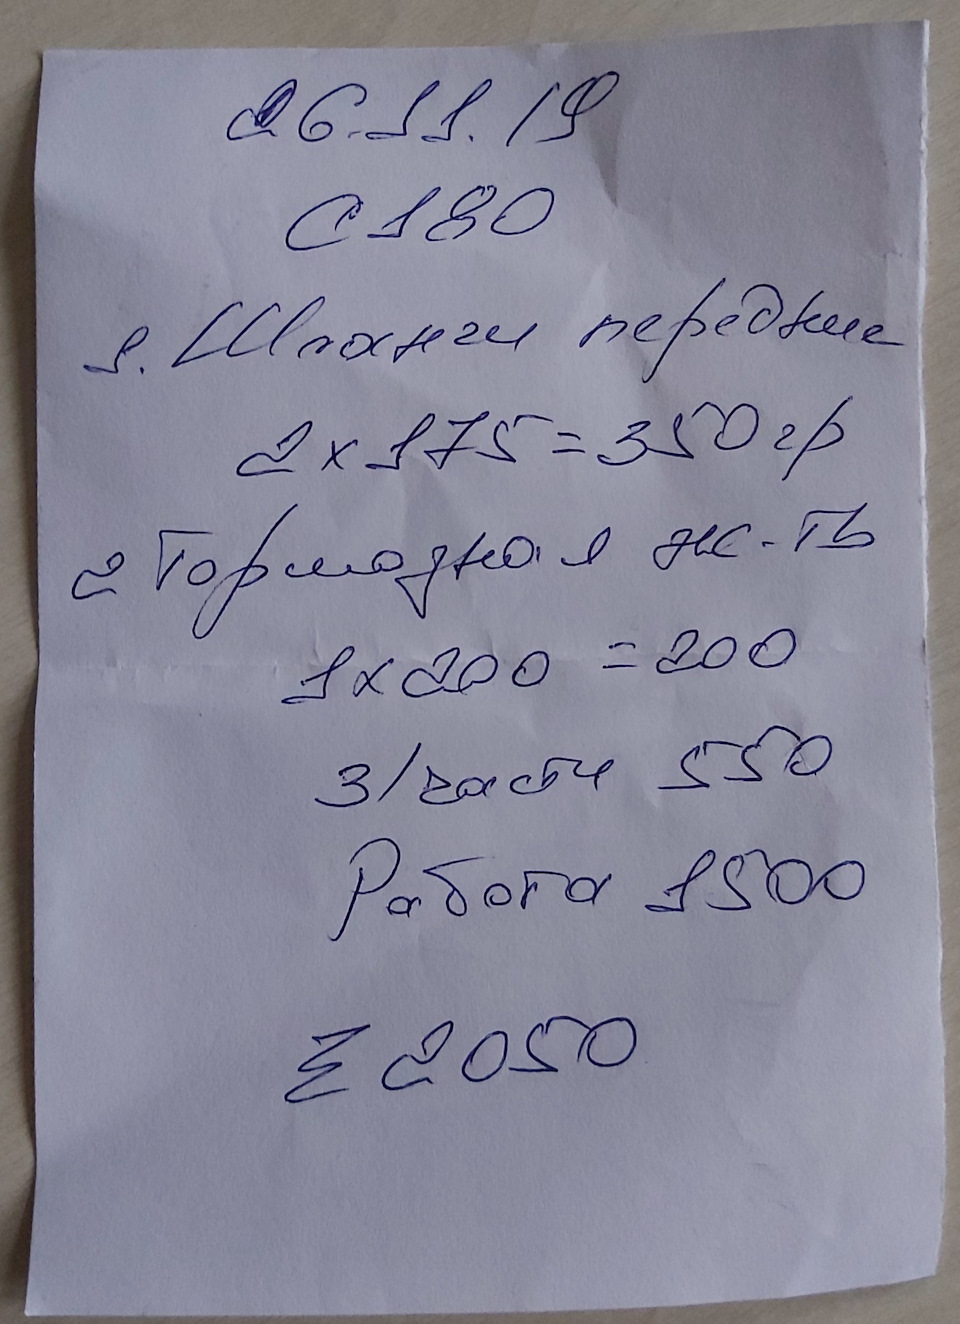 26.11.19
С180
1. Шланги передние
2 х 175 = 350 гр
2 Тормозная ж-ть
1 х 200 = 200
З/части 550
Работа 1500
Σ 2050